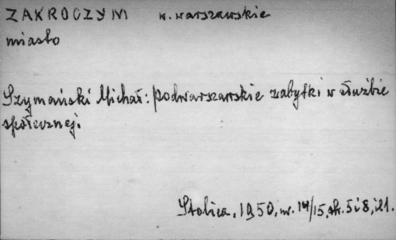 ZAKROCZYM w. warszawskie
miasto
Szymański Michał: podwarszawskie zabytki w służbie
społecznej.
Stolica, 1950, nr. 14/15, str. 5 i 8, i 21.